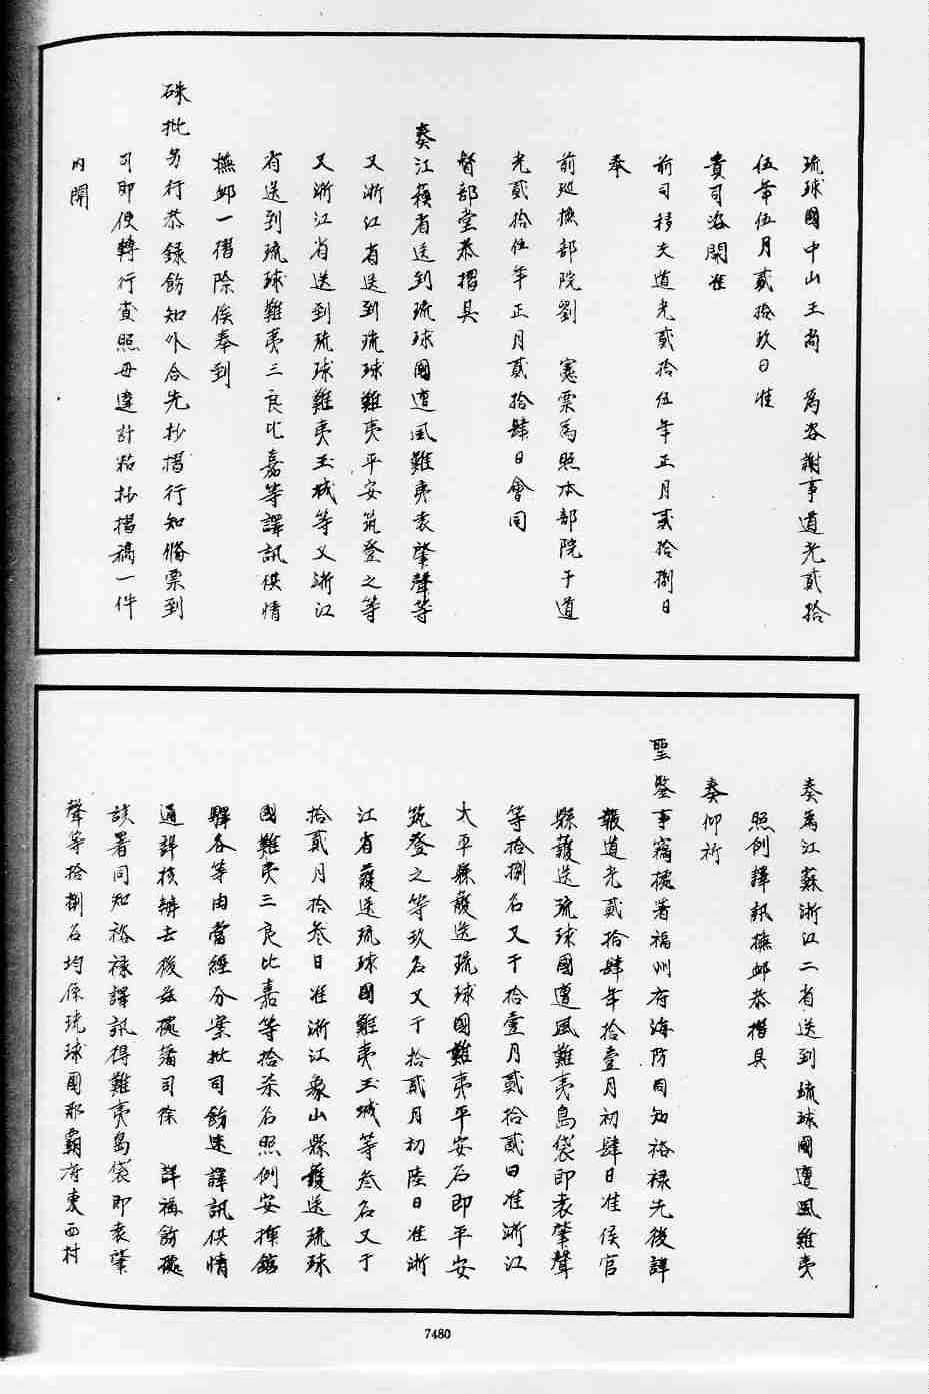 琉球國中山王尚　為咨謝事道光貳拾
伍年伍月貳拾玖日准
貴司咨開准
前司移交道光貳拾伍年正月貳拾捌日
奉
前巡撫部院劉　憲票為照本部院于道
光貳拾伍年正月貳拾肆日會同
督部堂恭摺具
奏江蘓省送到琉球國遭風難夷袁肇聲等
又浙江省送到琉球難夷平安筑登之等
又浙江省送到琉球難夷玉城等又浙江
省送到琉球難夷三良比嘉等譯訊供情
撫邺一摺除俟奉到
硃批另行恭錄飭知外合先抄摺行知備票到
司即便轉行查照毋違計粘抄摺稿一件
內開
奏為江蘇浙江二省送到琉球國遭風難夷
照例譯訊撫邺恭摺具
奏仰祈
聖鑒事竊據署福州府海防同知裕祿先後詳
報道光貳拾肆年拾壹月初肆日准侯官
縣護送琉球國遭風難夷島袋即袁肇聲
等拾捌名又于拾壹月貳拾貳日准浙江
太平縣護送琉球國難夷平安名即平安
筑登之等玖名又于拾貳月初陸日准浙
江省護送琉球國難夷玉城等叁名又于
拾貳月拾叁日准浙江象山縣護送琉球
國難夷三良比嘉等拾柒名照例安揷館
驛各等由當經分案批司飭迷譯訊供情
通詳核辦去後茲據藩司徐　詳稱飭據
該署同知裕祿譯訊得難夷島袋即袁肇
聲等拾捌名均係琉球國那霸府東西村
7480